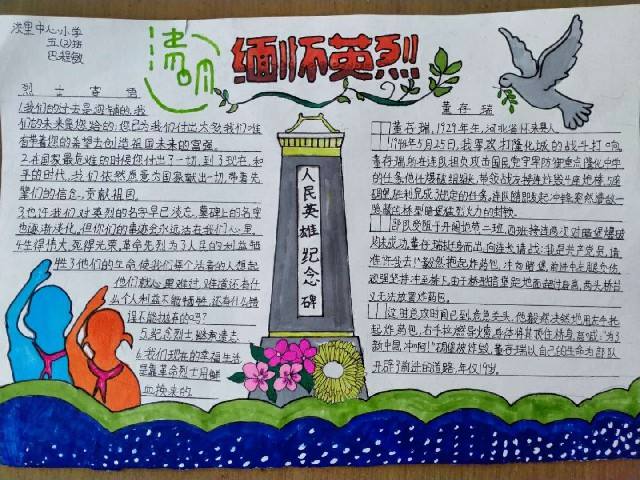 洪里中心小学
五(3)班
巴程敏
清明
缅怀英烈
烈士寄语
1.我们的过去是您铺的,我
们的未来是您给的,您已为我们付出太多,我们唯
有带着您的希望去创造祖国未来的富强。
2.在国家最危难的时候您付出了一切,到了现在,和
平的时代,我们依然愿意为国家献出一切,带着先
辈们的信念,贡献祖国。
3.也许我们对英烈的名字早已淡忘,墓碑上的名字
也逐渐淡化,但你们的事迹会永远活在我们心里。
4.生得伟大,死得光荣,革命先烈为了人民的利益牺
牲了他们的生命,使我们每个活着的人想起
他们就心里难过,难道还有什
么个人利益不能牺牲,还有什么错
误不能抛弃的吗?
5.纪念烈士,继承遗志。
6.我们现在的幸福生活
是靠革命烈士用鲜
血换来的。
人民英雄纪念碑
董存瑞
董存瑞,1929年生,河北省怀来县人。
1948年5月25日,我军攻打隆化城的战斗打响。
董存瑞所在连队担负攻击国民党守军防御重点隆化中学
的任务。他任爆破组组长,带领战友接连炸毁4座炮楼,5座
碉堡,胜利完成了规定的任务。连队随即发起冲锋,突然遭敌一
隐蔽的桥型暗堡猛烈火力的封锁。
部队受阻于开阔地带,二班、四班接连两次对暗堡爆破
均未成功。董存瑞挺身而出,向连长请战:我是共产党员,请
准许我去!"毅然抱起炸药包,冲向暗堡,前进中左腿负伤,
顽强坚持冲至桥下。由于桥型暗堡距地面超过身高,两头桥台
又无法放置炸药包。
这时总攻时间已到,危急关头,他毅然决然地用左手托
起炸药包,右手拉燃导火索,身体将其顶住桥身,高喊:为了
新中国,冲啊!"碉堡被炸毁,董存瑞以自己的生命为部队
开辟了前进的道路,年仅19岁。